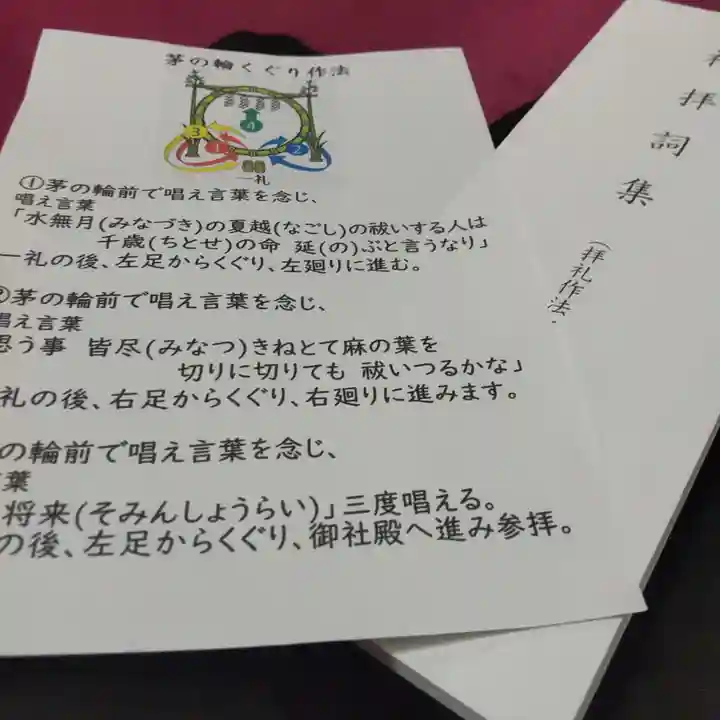 茅の輪くぐり作法
3
1
2
4
一礼
①茅の輪前で唱え言葉を念じ、
唱え言葉
「水無月(みなづき)の夏越(なごし)の祓いする人は
千歳(ちとせ)の命 延(の)ぶと言うなり」
一礼の後、左足からくぐり、左廻りに進む。
②茅の輪前で唱え言葉を念じ、
唱え言葉
思う事 皆尽(みなつ)きねとて麻の葉を
切りに切りても 祓いつるかな」
礼の後、右足からくぐり、右廻りに進みます。
の輪前で唱え言葉を念じ、
葉
将来(そみんしょうらい)」三度唱える。
の後、左足からくぐり、御社殿へ進み参拝。
拝詞集
(拝礼作法・